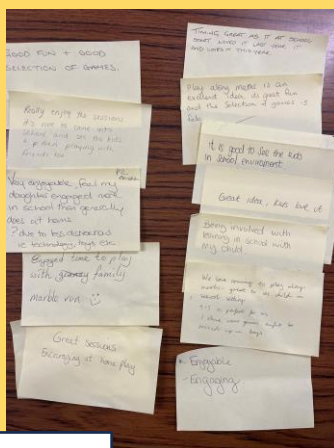 GOOD FUN + GOOD
SELECTION OF GAMES.
Really enjoy the sessions
it's nice to come into
school and see the kids
playing with
friends too
Very enjoyable, feel my
daughter engaged more
in school than generally
does at home
? due to less distractions
ie technology, toys etc
Enjoyed time to play
with family
marble run
Great sessions.
Encouraging at home play
TIMING GREAT AS IT AT SCHOOL
START, LOVED IT LAST YEAR IT
AND LOVED IT THIS YEAR.
Play along maths is an
excellent idea, its great fun
and the selection of games is
It is good to see the kids
in school environment
Great idea, kids love it
Being involved with
learning in school with
my child
We love coming to play along
maths. great to see child in
school setting
is perfect for me
games
Enjoyable
-Engaging